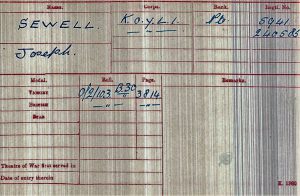 Name. Corps. Rank. Regtl. No.
SEWELL. K.O.Y.L.I. Pte. 5941
Joseph. 240585
Medal. Roll. Page. Remarks.
VICTORY 3814
BRITISH — " — — " —
STAR
Theatre of War first served in
Date of entry therein
K. 1380